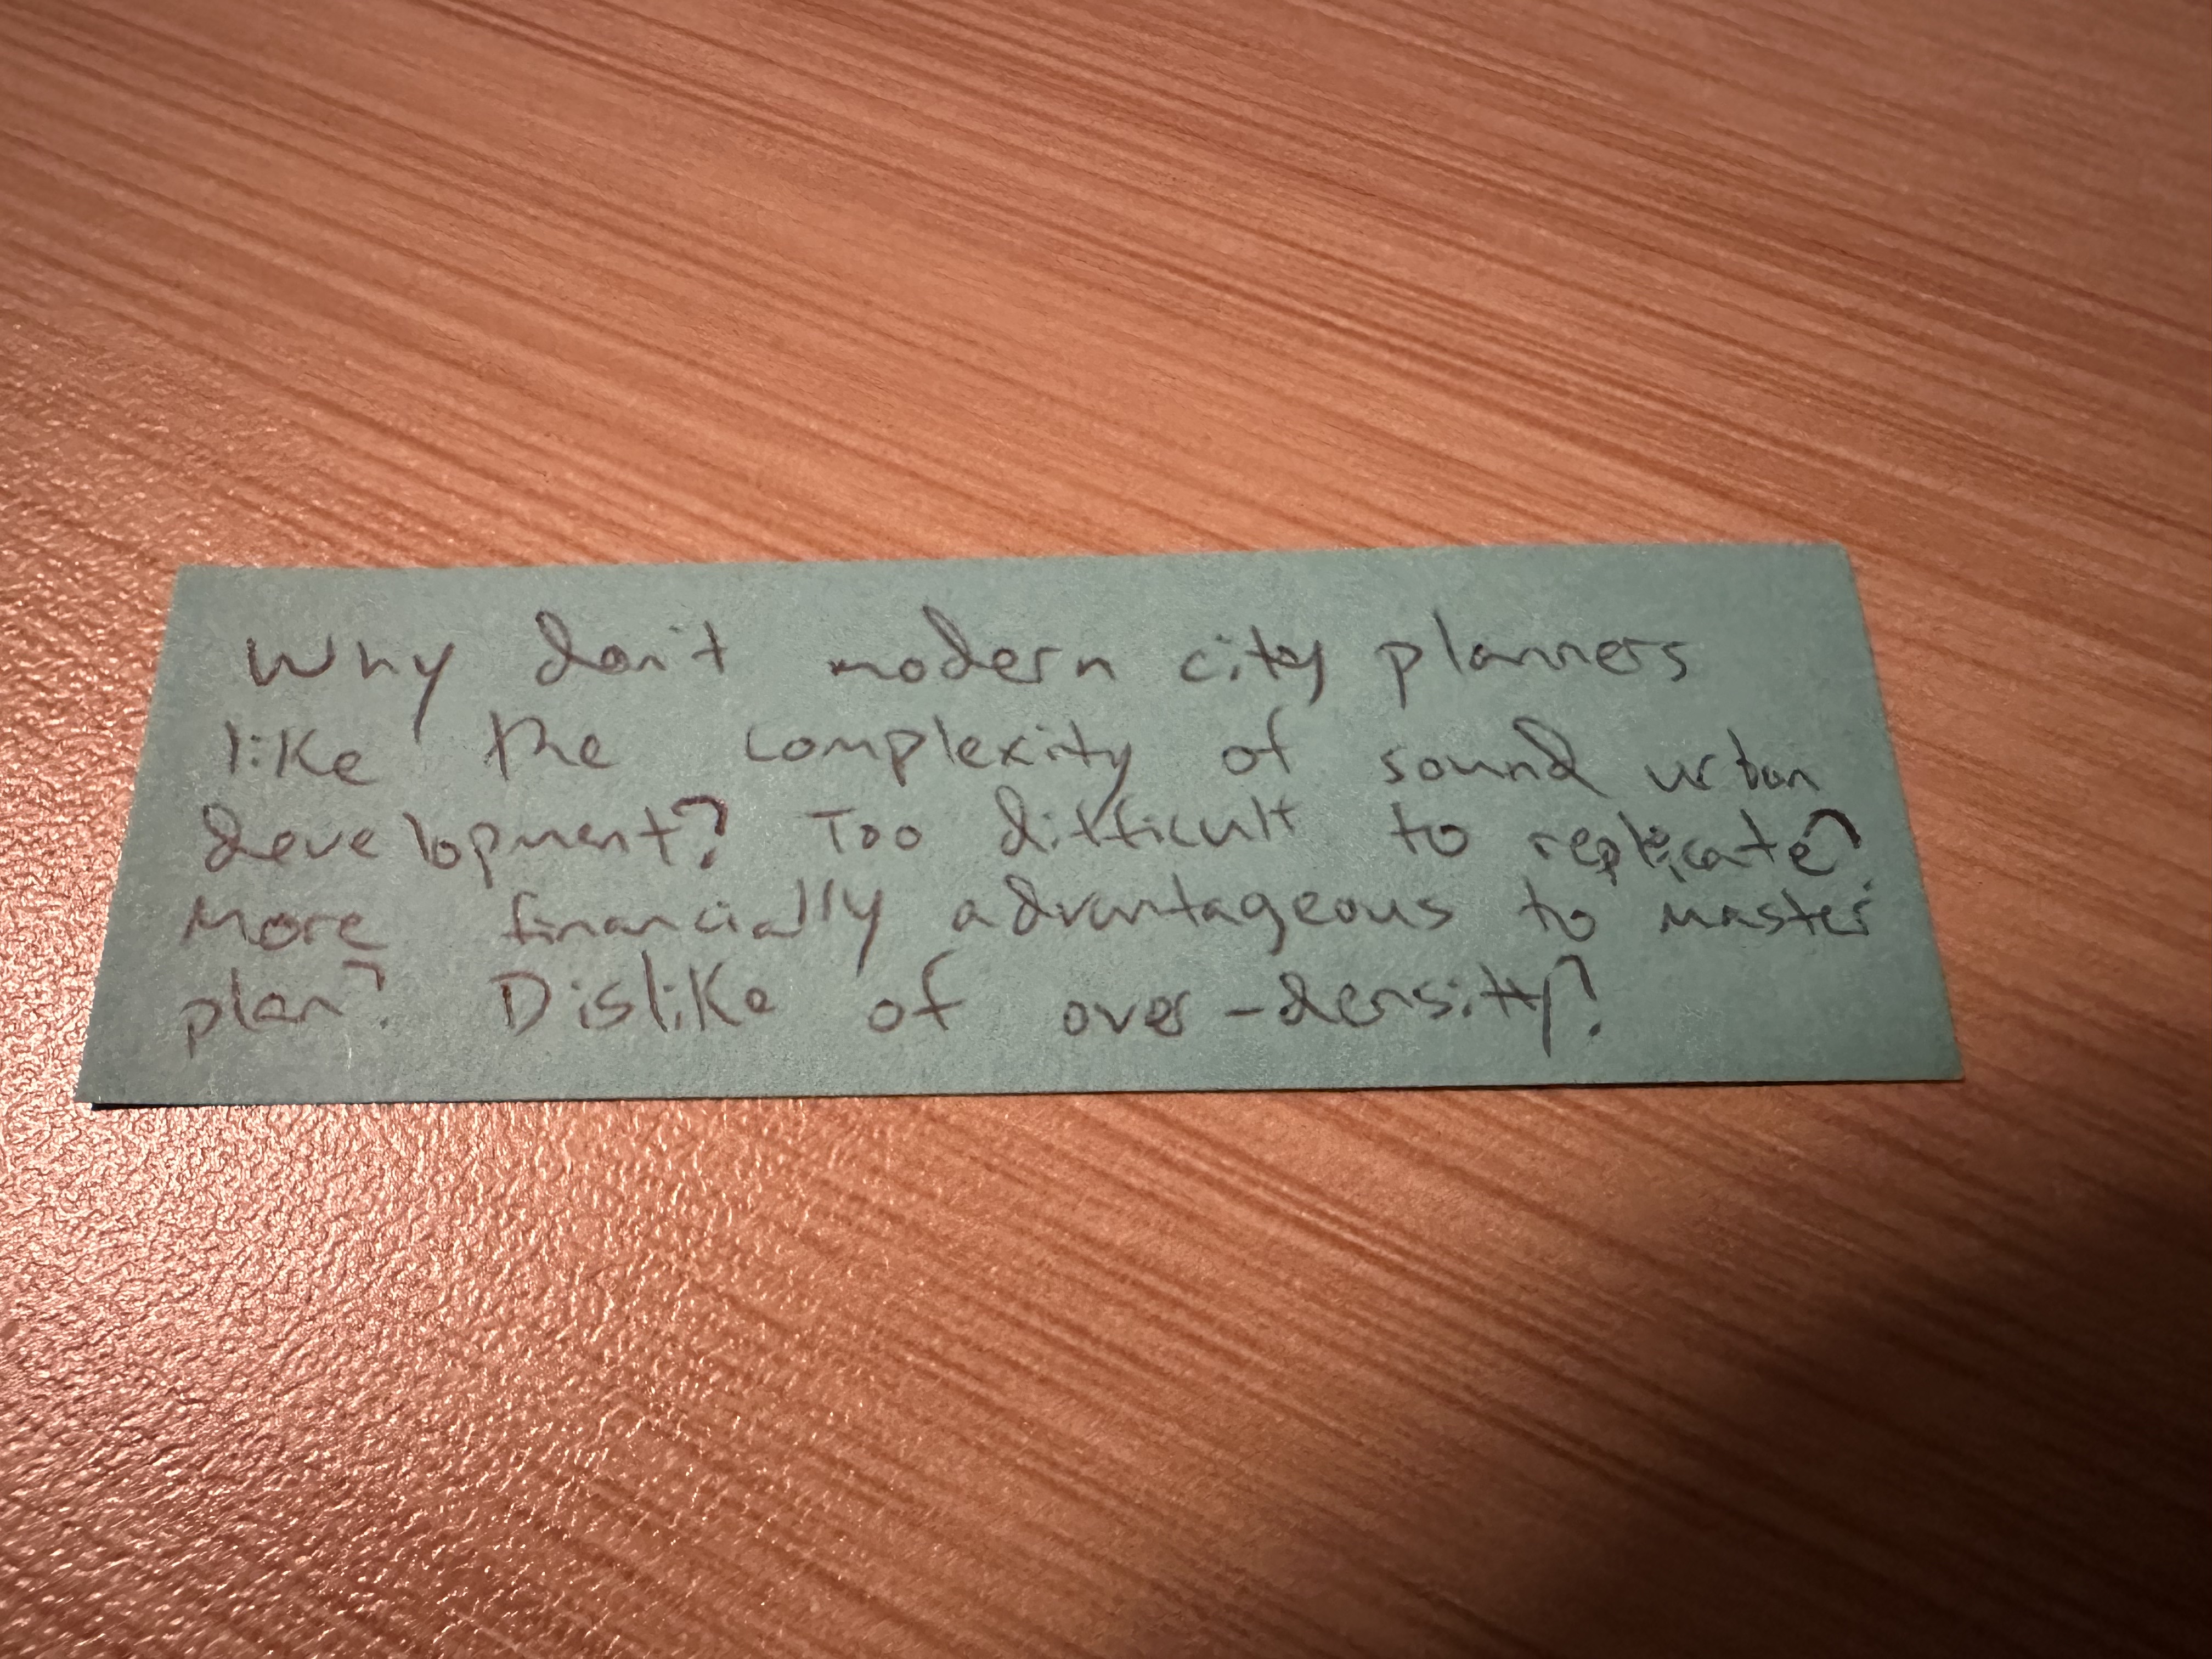 Why don't modern city planners
like the complexity of sound urban
development? Too difficult to replicate?
More financially advantageous to master
plan? Dislike of over-density?